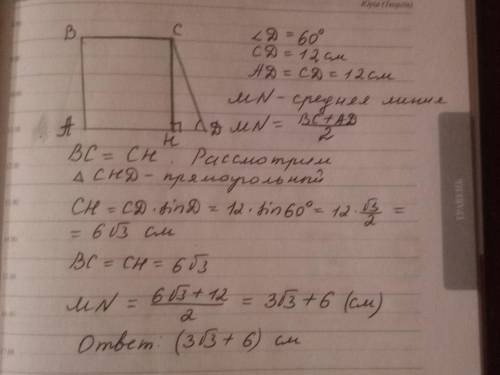 Юрія (Георгія)
B C
∠D = 60°
CD = 12 см
AD = CD = 12 см
MN - средняя линия
A H D
MN = (BC + AD)/2
BC = CH . Рассмотрим
△ CHD - прямоугольный
CH = CD · sin D = 12 · sin 60° = 12 · √3/2 =
= 6√3 см
BC = CH = 6√3
MN = (6√3 + 12)/2 = 3√3 + 6 (см)
Ответ: (3√3 + 6) см
ТРАВЕНЬ